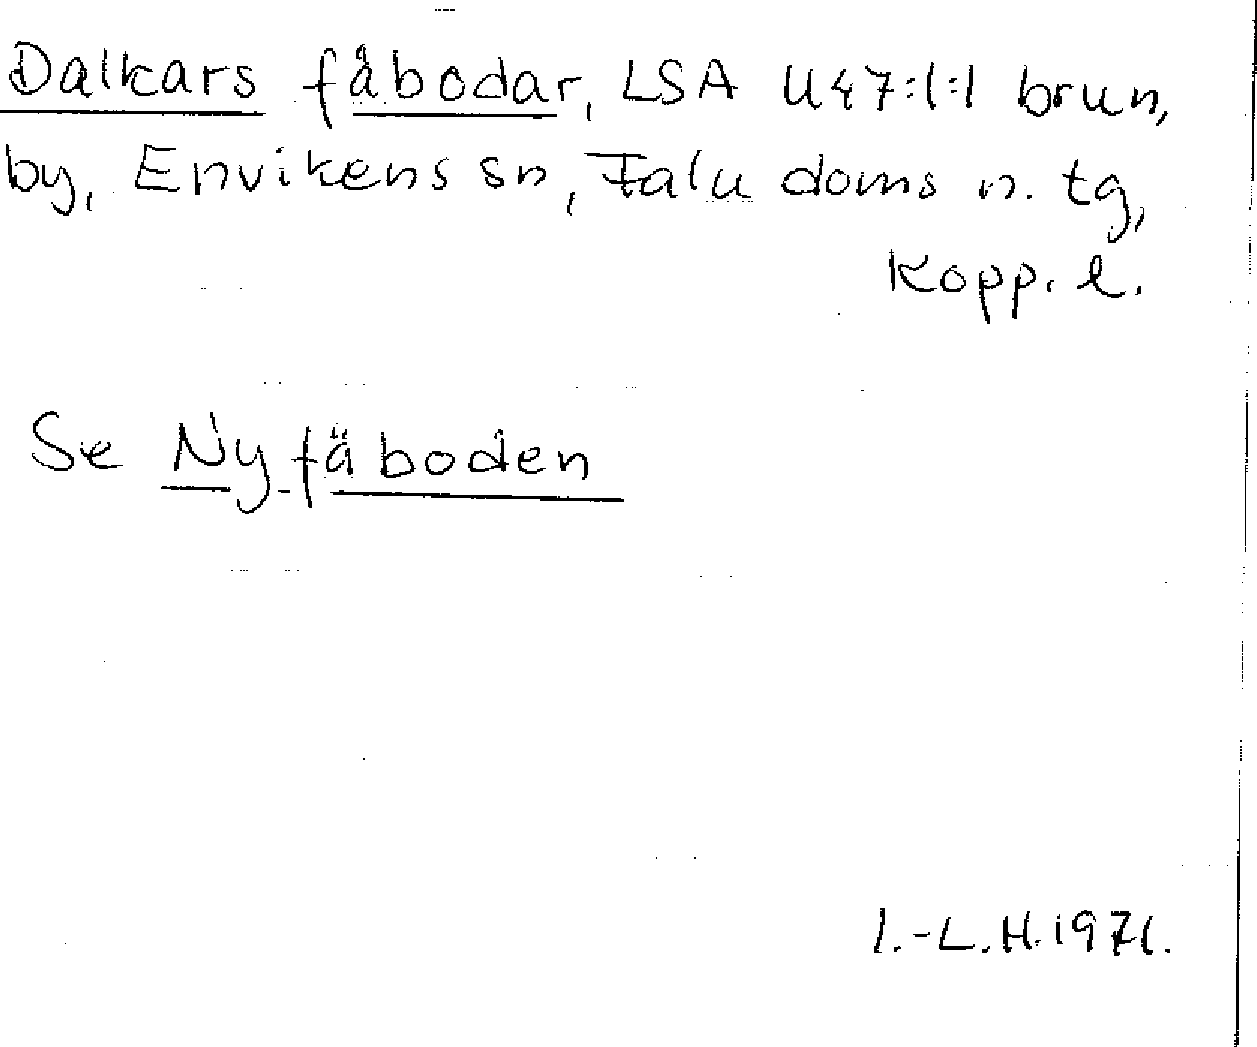 Dalkars fäbodar, LSA U47:1:1 brun,
by, Envikens sn, Falu doms n. tg,
Kopp. l.
Se Nyfäboden
I.-L.H. 1971.